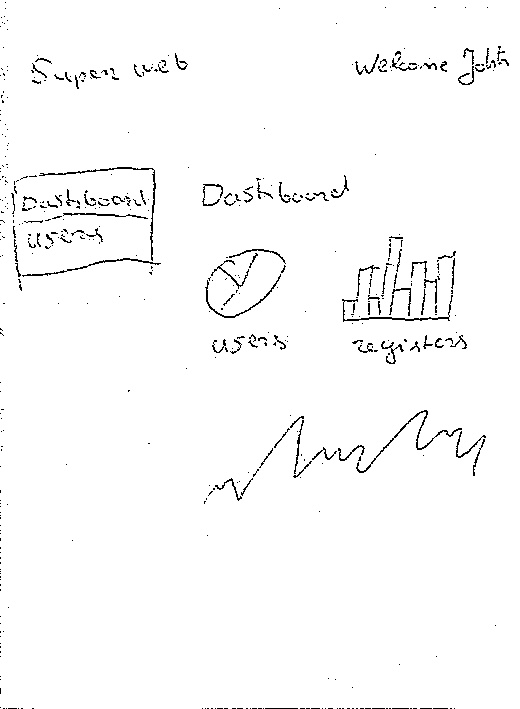 Super web
Welcome John
Dashboard
users
Dashboard
users
registers